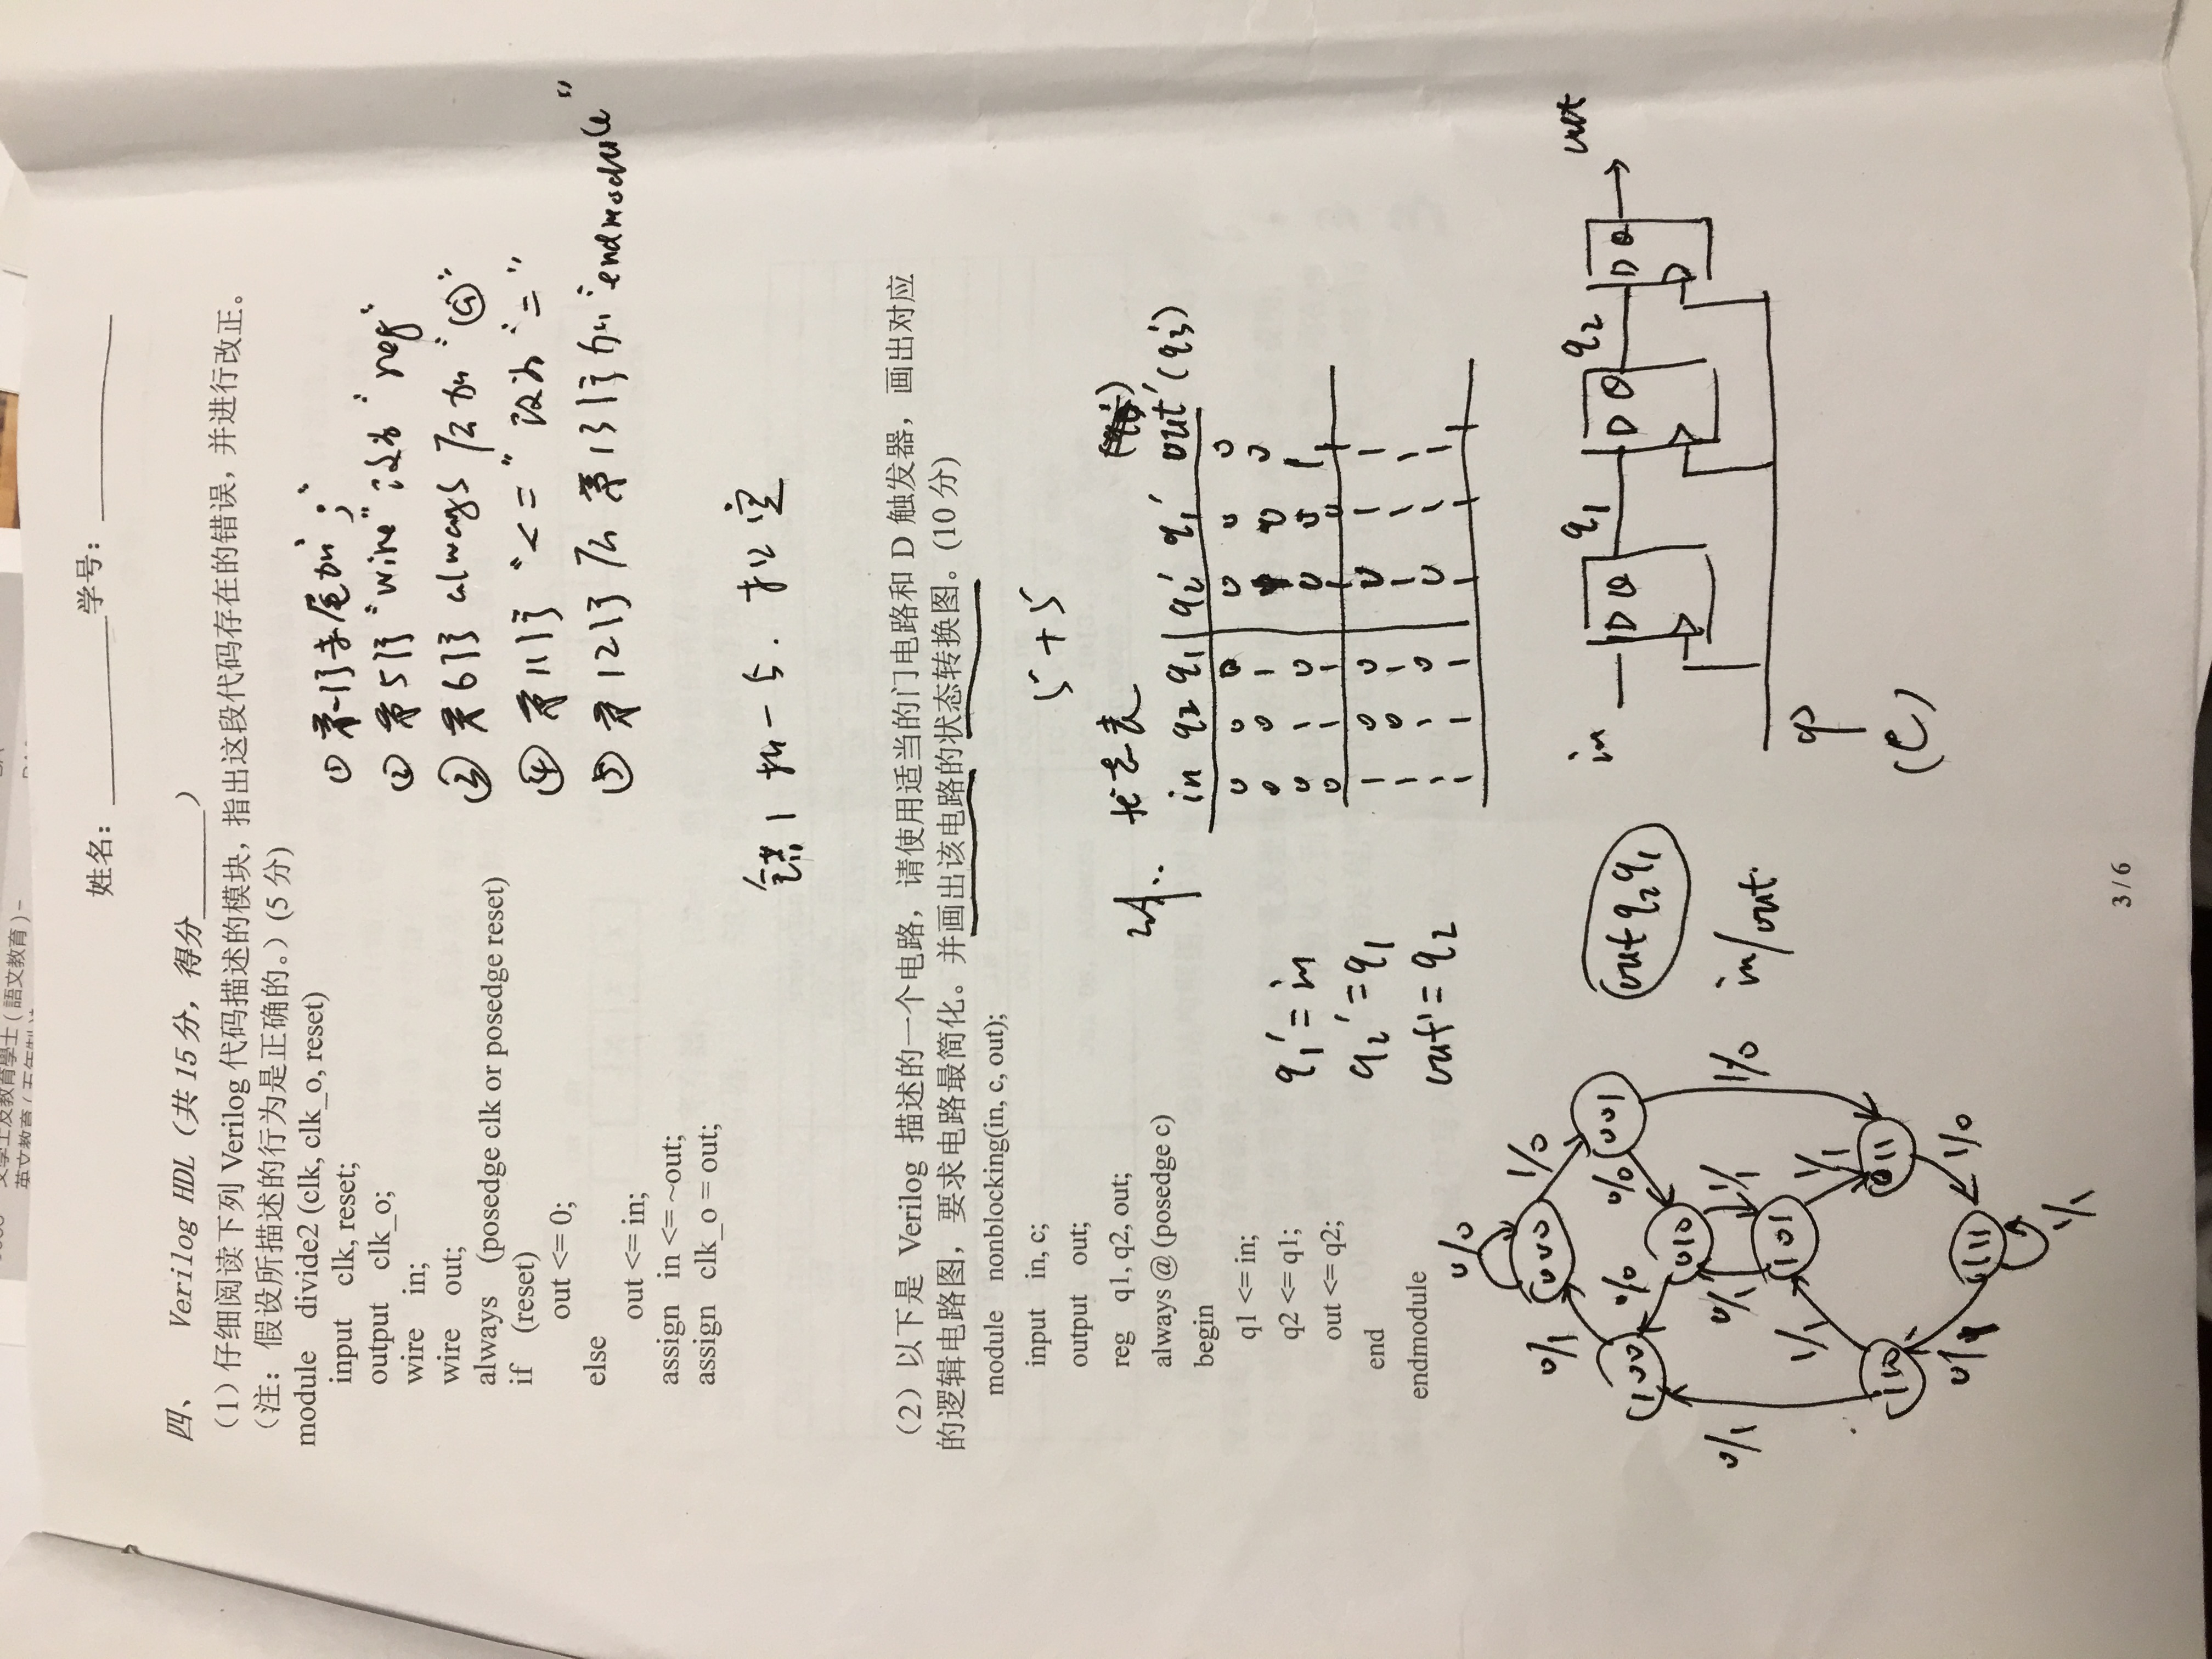 文學士及教育學士(語文教育)–
英文教育(五年制)
姓名：__________学号：__________
四、 Verilog HDL（共 15 分，得分______）
（1）仔细阅读下列 Verilog 代码描述的模块，指出这段代码存在的错误，并进行改正。
（注：假设所描述的行为是正确的。）(5 分)
module divide2 (clk, clk_o, reset)
input clk, reset;
output clk_o;
wire in;
wire out;
always (posedge clk or posedge reset)
if (reset)
out <= 0;
else
out <= in;
assign in <= ~out;
assign clk_o = out;
① 第一行末尾加“;”
② 第5行“wire”改为“reg”
③ 第6行 always 后加“@”
④ 第11行“<=”改为“=”
⑤ 第12行后 第13行加“endmodule”
错1扣-5. 扣完
（2）以下是 Verilog 描述的一个电路，请使用适当的门电路和 D 触发器，画出对应
的逻辑电路图，要求电路最简化。并画出该电路的状态转换图。(10 分)
module nonblocking(in, c, out);
input in, c;
output out;
reg q1, q2, out;
always @ (posedge c)
begin
q1 <= in;
q2 <= q1;
out <= q2;
end
endmodule
5+5
状态表
in q2 q1 q2' q1' out' (q3')
0 0 0 0 0 0
0 0 1 1 0 0
0 1 0 0 0 1
0 1 1 1 0 1
1 0 0 0 1 1
1 0 1 1 1 1
1 1 0 0 1 1
1 1 1 1 1 1
q1' = in
q2' = q1
out' = q2
0/0
000
0/1
1/0
100
0/0
0/0
001
010
0/1
0/1
1/1
1/0
101
1/1
1/1
110
011
0/1
1/0
111
1/1
out q2 q1
in/out
in
D Q
q1
D Q
q2
D Q
out
(c)
3 / 6